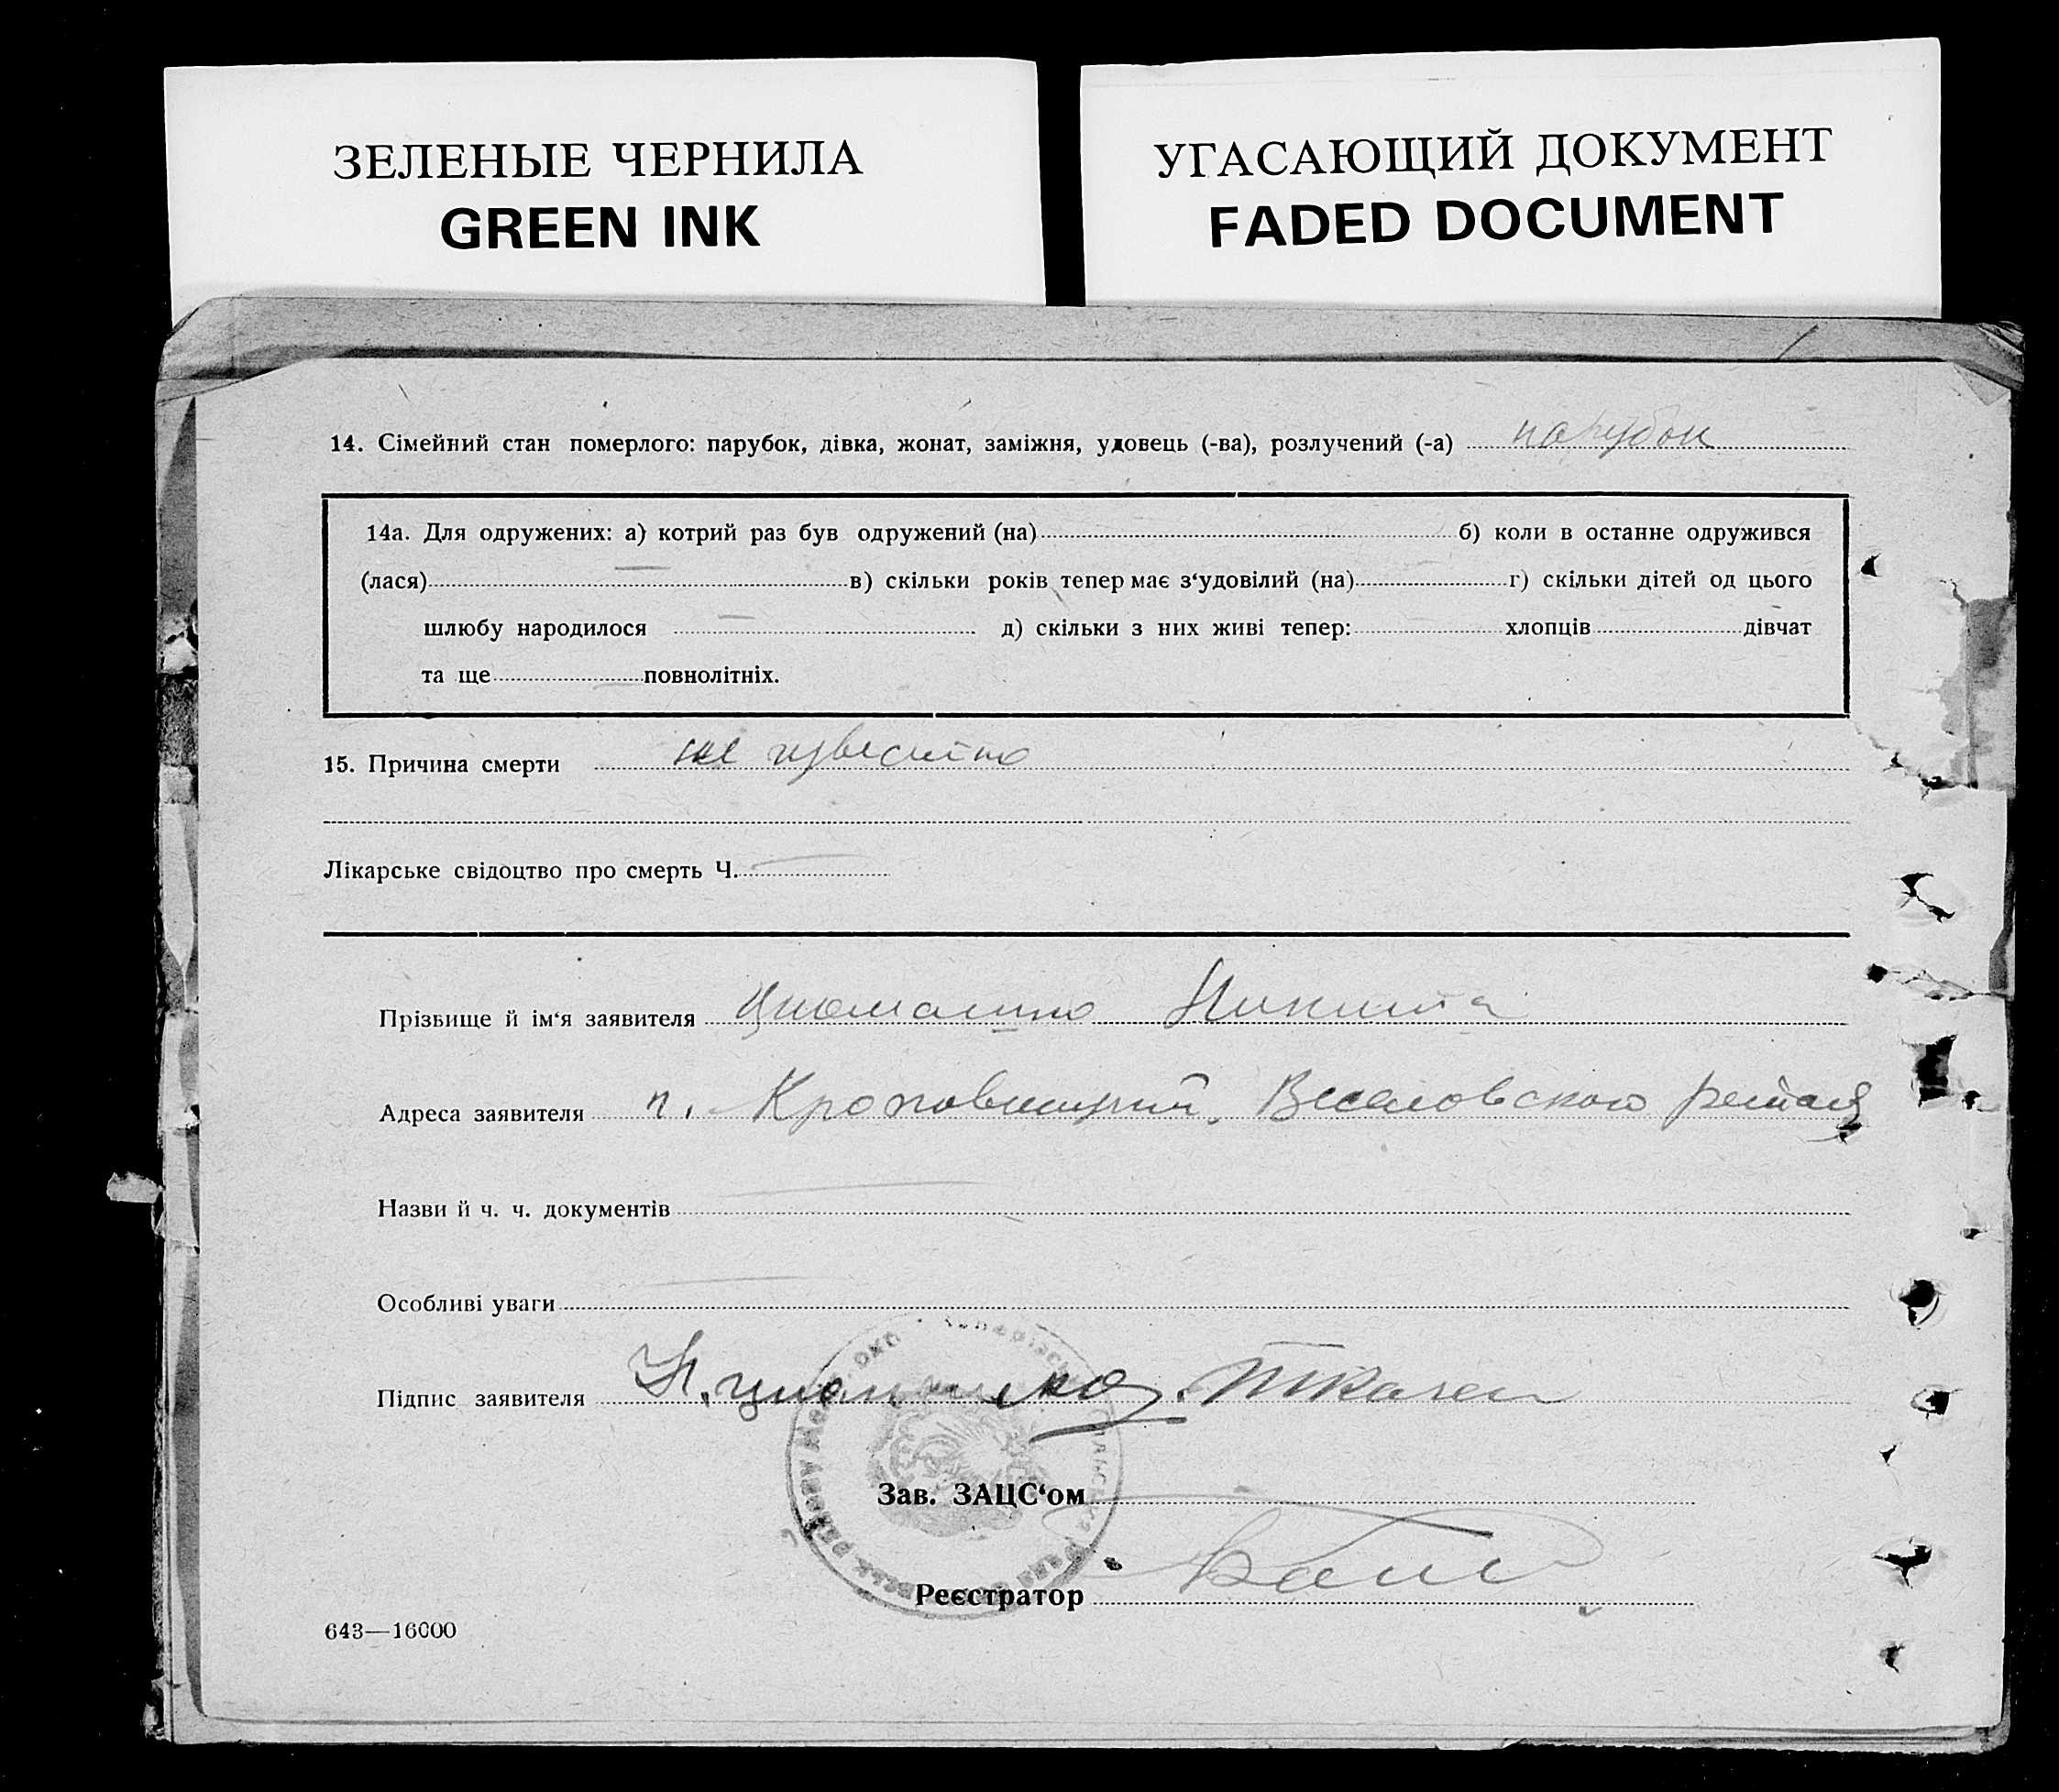 ЗЕЛЕНЫЕ ЧЕРНИЛА
GREEN INK
УГАСАЮЩИЙ ДОКУМЕНТ
FADED DOCUMENT
14. Сімейний стан померлого: парубок, дівка, жонат, заміжня, удовець (-ва), розлучений (-а) парубок
14а. Для одружених: а) котрий раз був одружений (на) б) коли в останне одружився
(лася) в) скільки років тепер має з‘удовілий (на) г) скільки дітей од цього
шлюбу народилося д) скільки з них живі тепер: хлопців дівчат
та ще повнолітніх.
15. Причина смерти не известно
Лікарське свідоцтво про смерть Ч.
Прізвище й ім‘я заявителя Никита
Адреса заявителя п. Кроповницкий, Веселовского
Назви й ч. ч. документів
Особливі уваги
Підпис заявителя Н. Ткачен
Зав. ЗАЦС‘ом
Реєстратор
643—16000